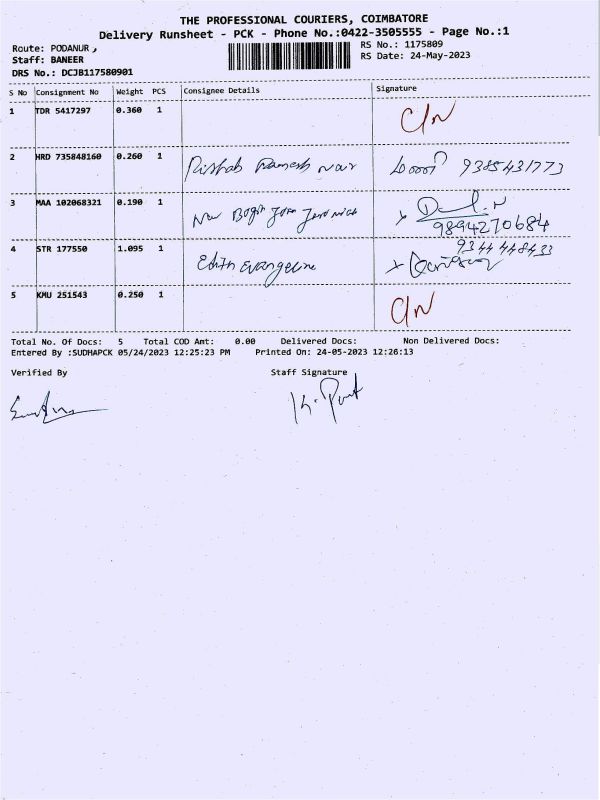 THE PROFESSIONAL COURIERS, COIMBATORE
Delivery Runsheet - PCK - Phone No.:0422-3505555 - Page No.:1
Route: PODANUR,
RS No.: 1175809
Staff: BANEER
RS Date: 24-May-2023
DRS No.: DCJB117580901
S No Consignment No Weight PCS Consignee Details Signature
1 TDR 5417297 0.360 1 C/N
2 HRD 735848160 0.260 1 Rishab Ramesh Nair 9385431773
3 MAA 102068321 0.190 1
9894270684
4 STR 177550 1.095 1 Edith Evangeline 9344448433
5 KMU 251543 0.250 1 C/N
Total No. Of Docs: 5 Total COD Amt: 0.00 Delivered Docs: Non Delivered Docs:
Entered By :SUDHAPCK 05/24/2023 12:25:23 PM Printed On: 24-05-2023 12:26:13
Verified By Staff Signature